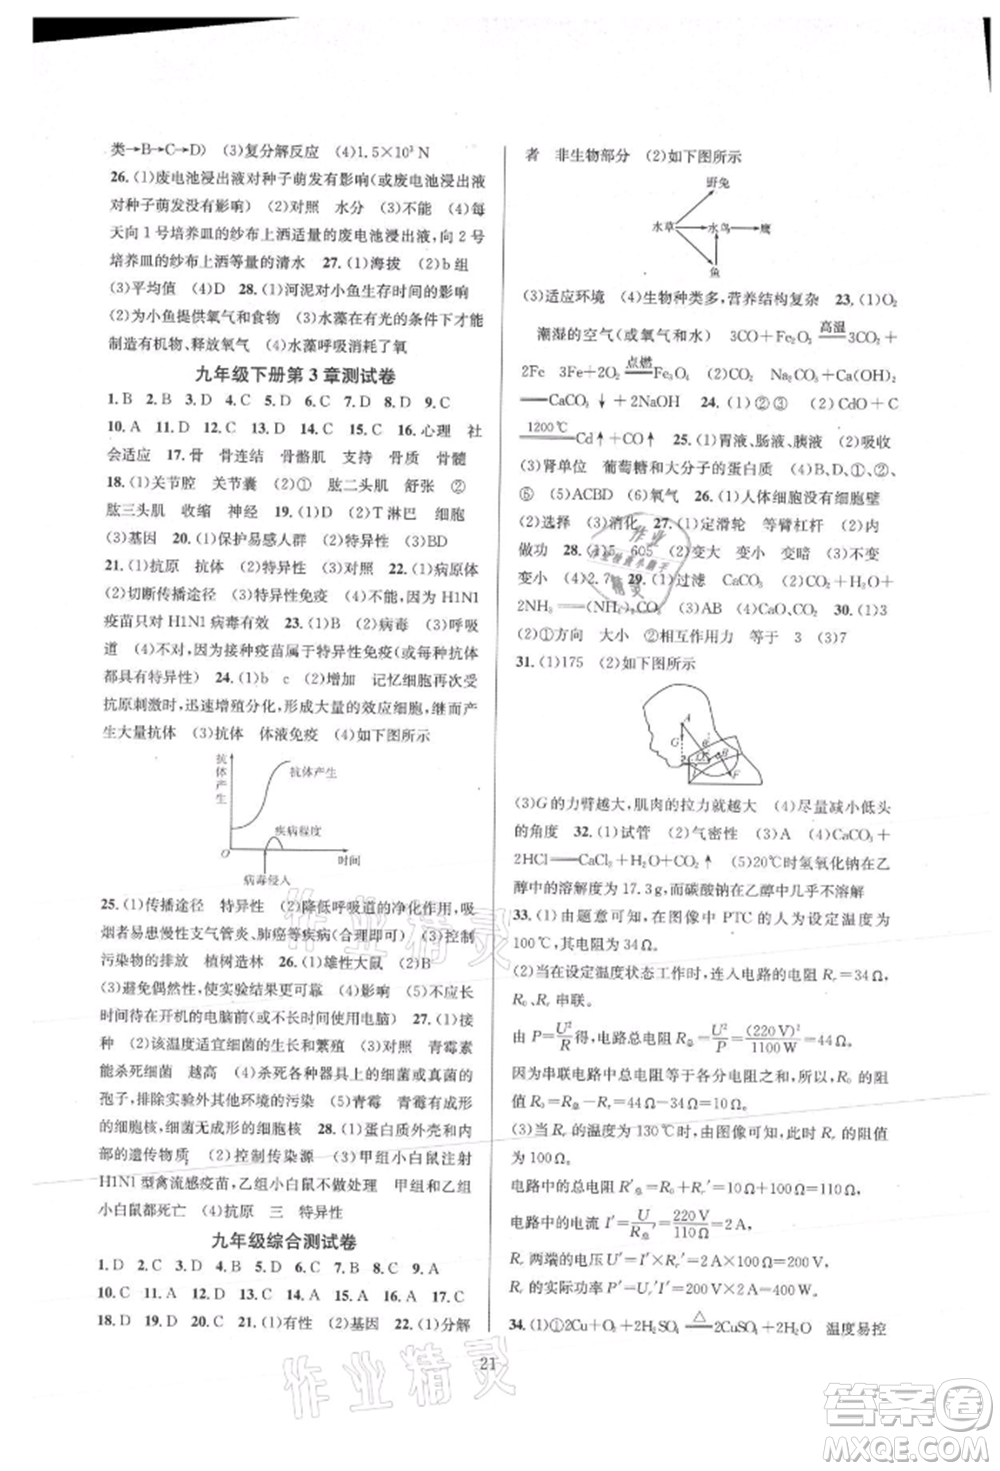 类→B→C→D) (3)复分解反应 (4)1.5×10³ N
26.(1)废电池浸出液对种子萌发有影响(或废电池浸出液
对种子萌发没有影响) (2)对照 水分 (3)不能 (4)每
天向1号培养皿的纱布上洒适量的废电池浸出液,向2号
培养皿的纱布上洒等量的清水 27.(1)海拔 (2)b组
(3)平均值 28.(1)河泥对小鱼生存时间的影响
(2)为小鱼提供氧气和食物 (3)水藻在有光的条件下才能
制造有机物、释放氧气 (4)水藻呼吸消耗了氧
九年级下册第3章测试卷
1.B 2.B 3.D 4.C 5.D 6.C 7.B 8.D 9.C
10.A 11.D 12.D 13.C 14.A 15.C 16.心理 社
会适应 17.骨 骨连结 骨骼肌 支持 骨质 骨髓
18.(1)关节腔 关节囊 (2)① 肱二头肌 舒张 ②
肱三头肌 收缩 神经 19.(1)D (2)T 淋巴 细胞
(3)基因 20.(1)保护易感人群 (2)抗体 (3)BD
21.(1)抗原 抗体 (2)②④ 22.(1)C (2)病原体
(2)切断传播途径 (3)特异性免疫 (4)不会,因为 H1N1
疫苗只对 H1N1 病毒有效 23.(1)D (2)病毒 (3)呼吸
道 (4)不对,因为接种疫苗属于特异性免疫(或每种抗体
都具有特异性) 24.(1)b c (2)增加 记忆细胞再次受
抗原刺激时,迅速增殖分化,形成大量的效应细胞,继而产
生大量抗体 (3)抗体 体液免疫 (4)如下图所示
抗体产生
抗体产生
疾病程度
O
时间
病毒侵入
25.(1)传播途径 特异性 (2)降低呼吸道的净化作用,吸
烟者易患慢性支气管炎、肺癌等疾病(合理即可) (3)控制
污染物的排放 植树造林 26.(1)雄性大鼠 (2)对照
(3)避免偶然性,使实验结果更可靠 (4)影响 (5)不应长
时间待在开机的电脑前(或合理使用电脑) 27.(1)接
种 (2)该温度适宜细菌的生长和繁殖 (3)对照 青霉素
能杀死细菌 越高 (4)杀死各种器具中的细菌或真菌的
孢子,防止实验后对其他环境的污染 (5)青霉 青霉有成形
的细胞核,细菌无成形的细胞核 28.(1)蛋白质外壳和内
部的遗传物质 (2)控制传染源 (3)甲组小白鼠注射
H1N1 型禽流感疫苗,乙组小白鼠不做处理 甲组和乙组
小白鼠都死亡 (4)抗原 三 特异性
九年级综合测试卷
1.D 2.D 3.D 4.C 5.B 6.C 7.B 8.C 9.A
10.C 11.A 12.D 13.B 14.D 15.A 16.A 17.C
18.D 19.D 20.D 21.(1)有性 (2)基因 22.(1)分解
者 非生物部分 (2)如下图所示
野兔
水草 水鸟 鹰
鱼
(3)适应环境 (4)生物种类多,营养结构复杂 23.(1)O₂
潮湿的空气(或氧气和水) 3CO+Fe₂O₃ 高温 3CO₂+
2Fe 3Fe+2O₂ 点燃 Fe₃O₄ (2)CO₂ Na₂CO₃+Ca(OH)₂
CaCO₃↓+2NaOH 24.(1)①②③ (2)CdO+C
1200℃ Cd↑+CO↑ 25.(1)胃液、肠液、胰液 (2)吸收
(3)肾单位 葡萄糖和大分子的蛋白质 (4)②④⑥ ①③
⑤ (5)ACBD (6)氧气 26.(1)人体细胞没有细胞壁
(2)选择 (3)消化 27.(1)定滑轮 等臂杠杆 (2)内
做功 28.(1)5 605 (2)变大 变小 变暗 (3)不变
变小 (4)2.7 29.(1)过滤 (2)CO₂+H₂O+
2NH₃ (NH₄)₂CO₃ (3)AB (4)CaO、CO₂ 30.(1)3
(2)①方向 大小 ②相互作用力 等于 3 (3)7
31.(1)175 (2)如下图所示
A
G
F
(3)G的力臂越大,肌肉的拉力就越大 (4)尽量减小低头
的角度 32.(1)试管 (2)气密性 (3)A (4)CaCO₃+
2HCl CaCl₂+H₂O+CO₂↑ (5)20℃时氢氧化钠在乙
醇中的溶解度为17.3g,而碳酸钠在乙醇中几乎不溶解
33.(1)由题意可知,在图像中 PTC 的人为设定温度为
100℃,其电阻为34Ω。
(2)当在设定温度状态工作时,连入电路的电阻 Rr=34Ω,
R₀、Rr 串联。
由 P=U²/R 得,电路总电阻 R总=U²/P=(220 V)²/1100 W=44Ω,
因为串联电路中总电阻等于各分电阻之和,所以,R₀ 的电
阻值 R₀=R总-Rr=44Ω-34Ω=10Ω。
(3)当 Rr 的温度为130℃时,由图像可知,此时 Rr 的阻值
为100Ω,
电路中的总电阻 R'总=R₀+Rr'=10Ω+100Ω=110Ω,
电路中的电流 I'=U/R'总=220 V/110Ω=2 A,
Rr 两端的电压 U'=I'Rr'=2A×100Ω=200 V,
Rr 的实际功率 P'=Ur'I'=200 V×2 A=400 W。
34.(1)①2Cu+O₂+2H₂SO₄ △ 2CuSO₄+2H₂O 温度易控
21
作业精灵
作业精灵
作业精灵
答案圈
MXQE.COM